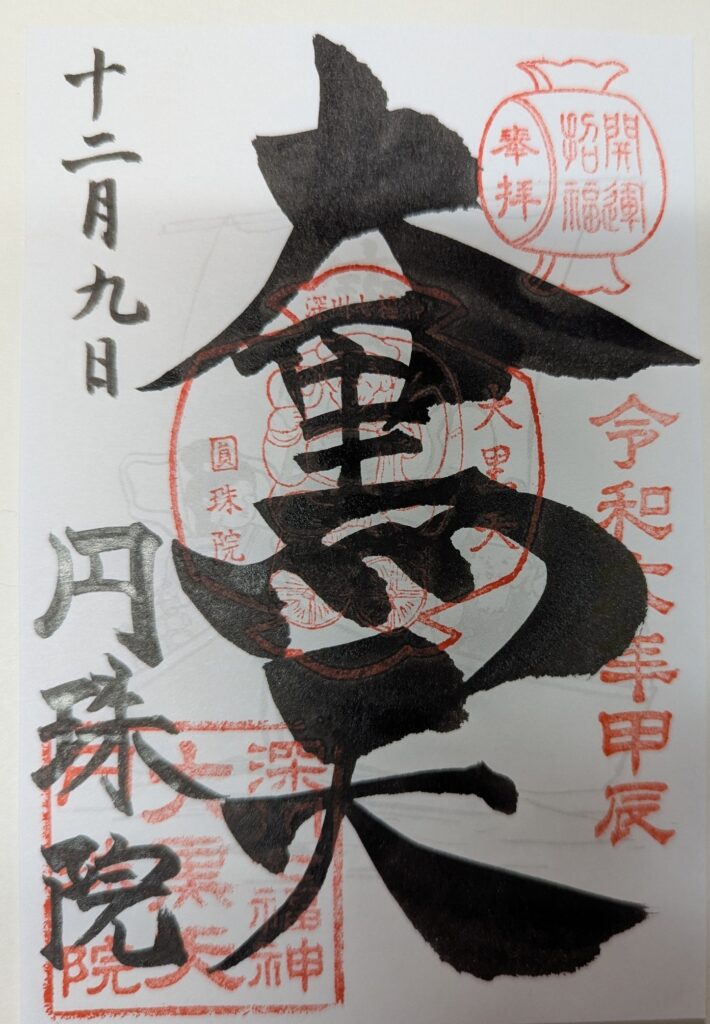 開運
招福
奉拝
令和六年甲辰
大黒天
深川七福神
大黒天
圓珠院
十二月九日
円珠院
深川七福神
大黒天
円珠院